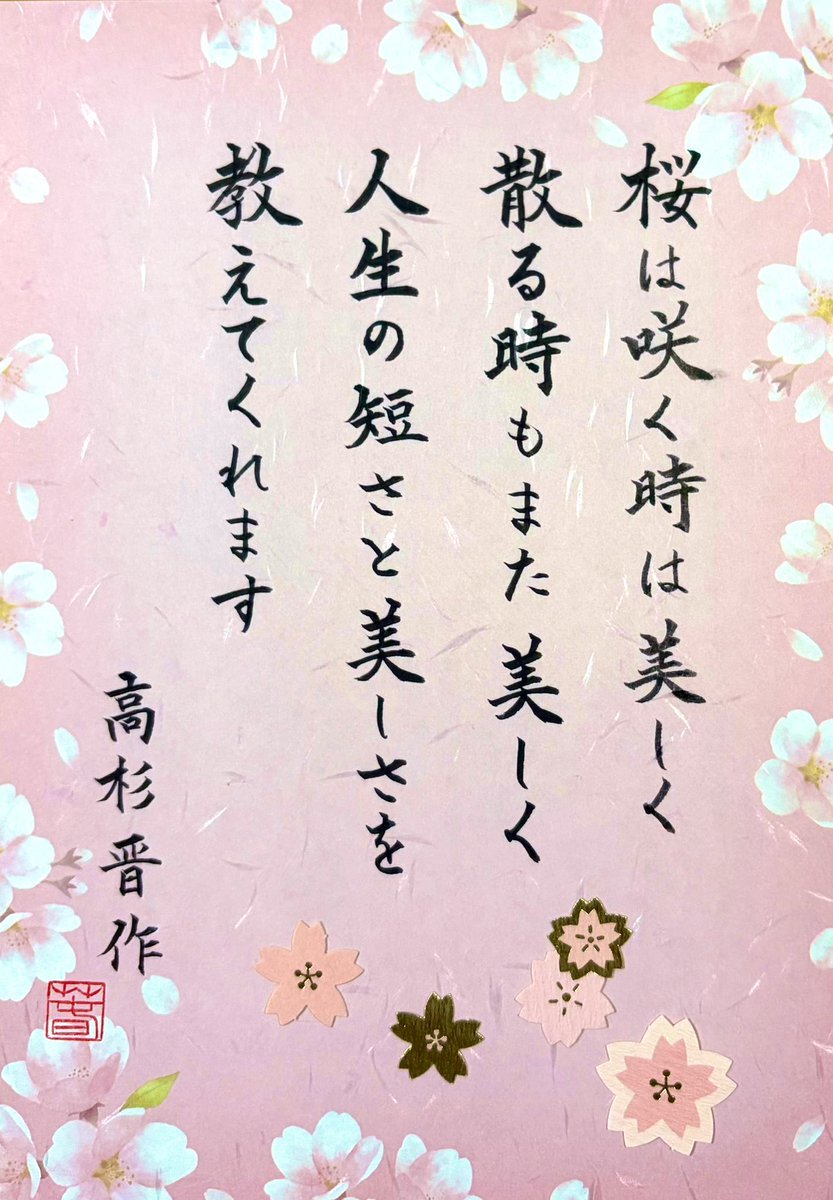 桜は咲く時は美しく
散る時もまた美しく
人生の短さと美しさを
教えてくれます
高杉晋作